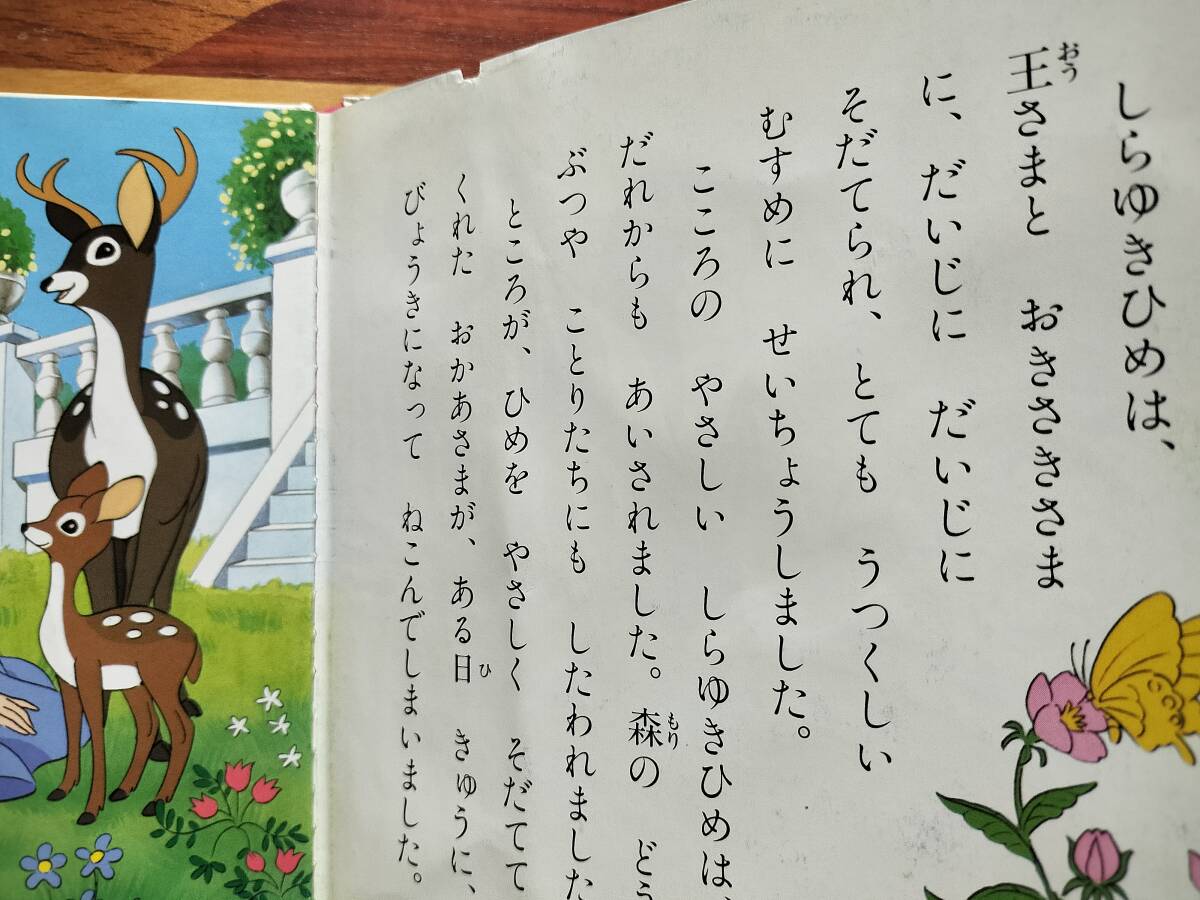 しらゆきひめは、
王さまと おきさきさま
に、だいじに だいじに
そだてられ、とても うつくしい
むすめに せいちょうしました。
こころの やさしい しらゆきひめは、
だれからも あいされました。森の どう
ぶつや ことりたちにも したわれました
ところが、ひめを やさしく そだてて
くれた おかあさまが、ある日 きゅうに、
びょうきになって ねこんでしまいました。
おう
もり
ひ